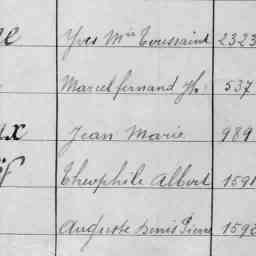 Yves Mie Toussaint 2323
Marcel fernand Jh. 537
ux Jean Marie 989
Théophile Albert 1591
Auguste Denis Pierre 1592